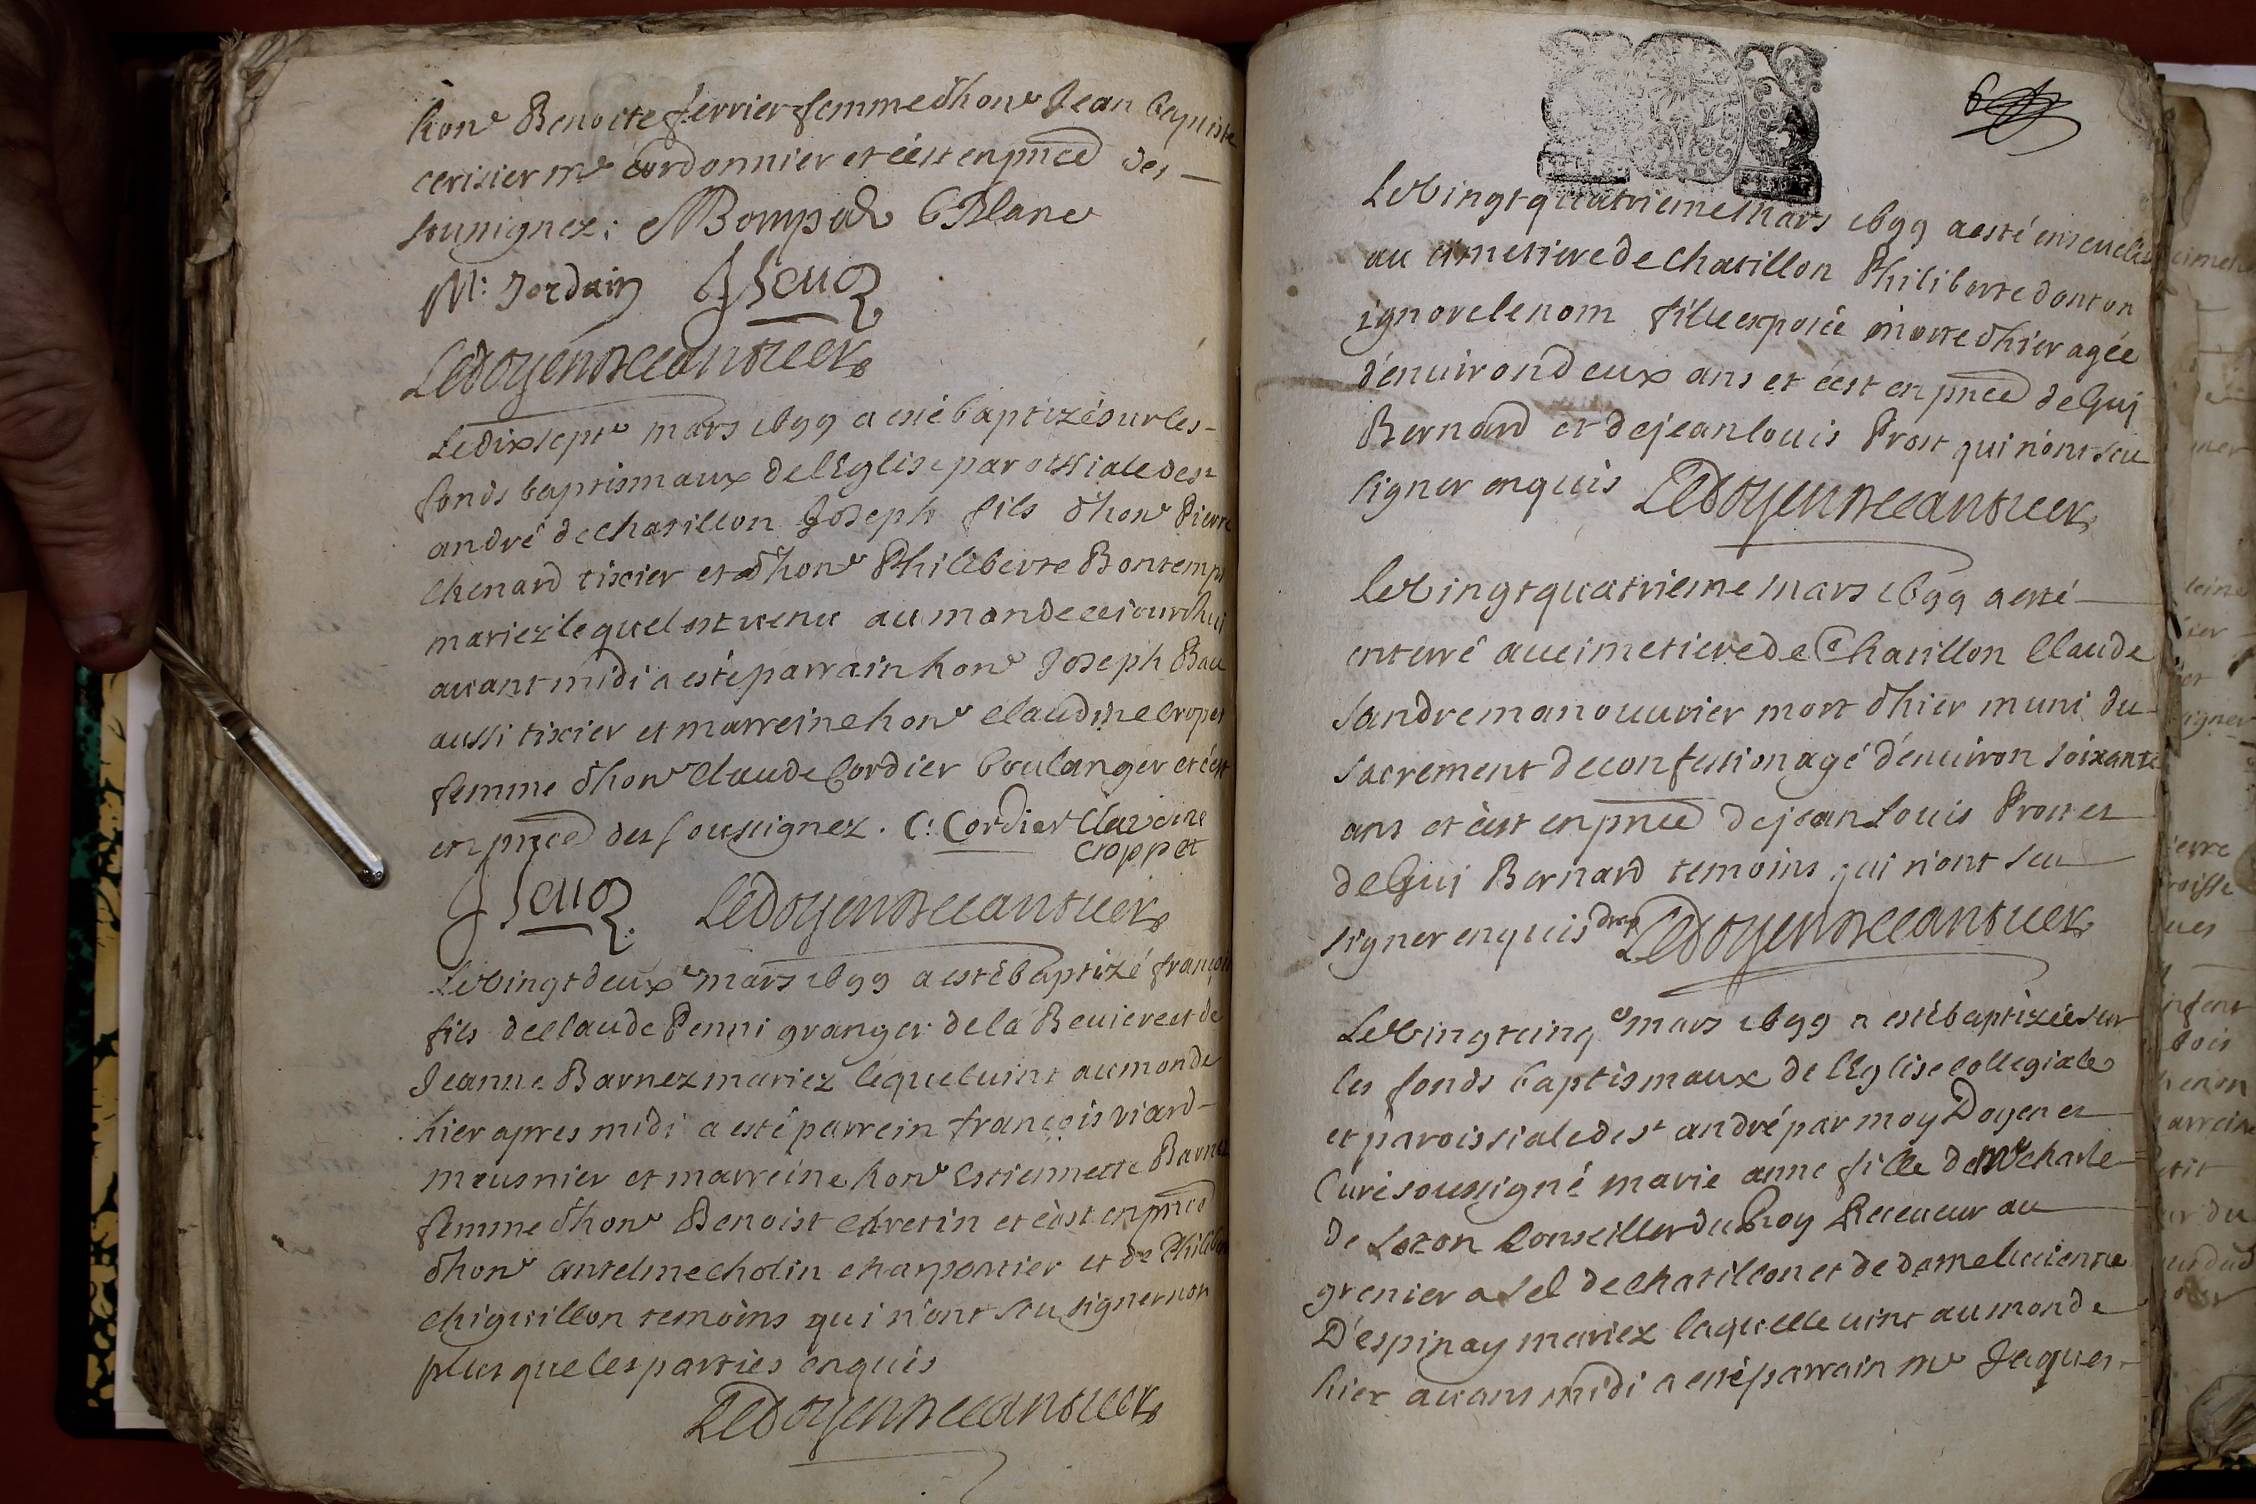 hon^e Benoite ferrier femme d'hon^e Jean baptiste
cerisier m^e cordonnier et c'est en pnce des
sousignez: Blanc
M: Jordain
Ledoyen
Le dix sept^e mars 1699 a esté baptizé sur les
fonds baptismaux de l'Eglise paroissiale de s^t
andré de chatillon Joseph fils d'hon^e Pierre
chenard tixier et d'hon^e Philiberte Bontemps
mariez lequel est venu au monde ce jourdhui
avant midi a esté parrain hon^e Joseph Bau
aussi tixier et marreine hon^e Claudine cropet
femme d'hon^e Claude Cordier boulanger et c'est
en pnce des soussignez. C: Cordier Claudine
Croppet
Ledoyen
Le vingt deux^e mars 1699 a esté baptizé françois
fils de claude Penni granger de la Beviere et de
Jeanne Barnez mariez lequel vint au monde
hier apres midi a esté parrein françois viard
meusnier et marreine hon^e Estiennette Barnez
femme d'hon^e Benoist chretin et c'est en pnce
d'hon^e antelme cholin charpentier et de Philibert
chiguillon temoins qui n'ont seu signer non
plus que les parties enquis
Ledoyen
6
Le vingt quatrieme mars 1699 a esté ensevelie
au cimetiere de chatillon Philiberte dont on
ignore le nom fille exposée morte d'hier agée
d'environ deux ans et c'est en pnce de Gui
Bernard et de jean louis Prost qui n'ont seu
signer enquis Ledoyen
le vingt quatrieme mars 1699 a esté
enterré au cimetiere de Chatillon Claude
sandre manouvrier mort d'hier muni du
sacrement de confession agé d'environ soixante
ans et c'est en pnce de jean Louis Prost et
de Gui Bernard temoins qui n'ont seu
signer enquis Ledoyen
Le vingt cinq^e mars 1699 a esté baptizée sur
les fonds baptismaux de l'Eglise collegiale
et paroissiale de s^t andré par moy Doyen et
Curé soussigné marie anne fille de M^e charle
de Lozon Conseiller du Roy Receveur au
grenier a sel de chatillon et de dame lucienne
D'espinay mariez laquelle vint au monde
hier avant midi a esté parrain m^e Jaques